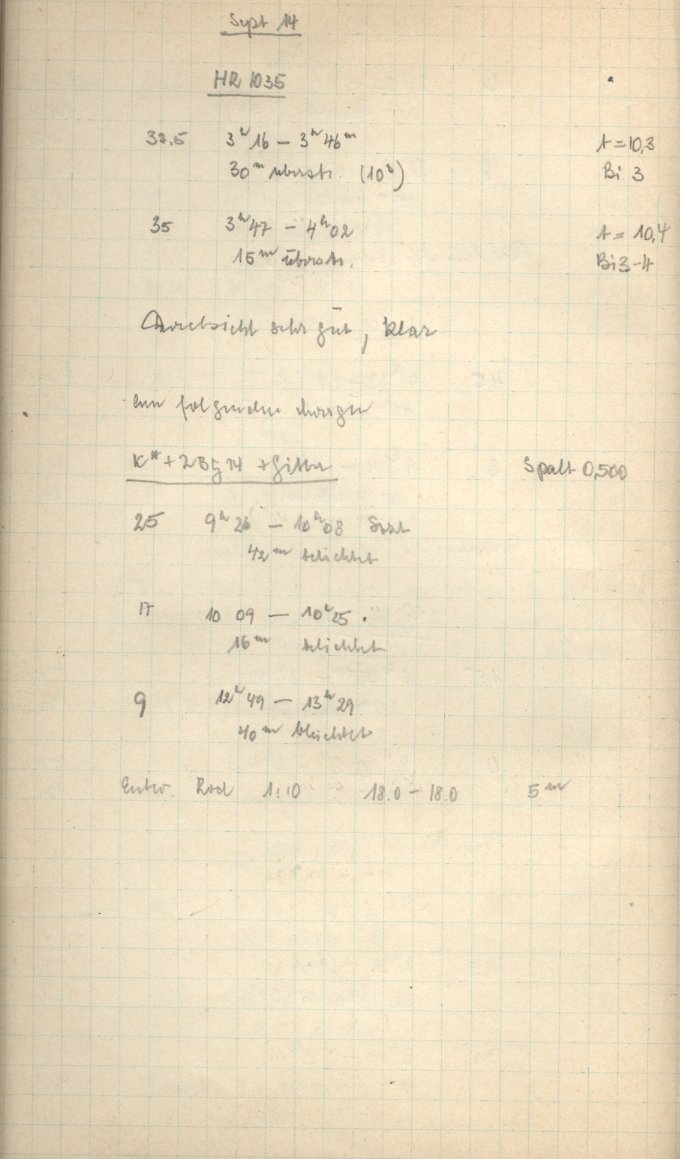 Sept 14
HR 1035
32.5 3ʰ16 – 3ʰ46ᵐ t = 10,3
30ᵐ überstr. (10ˢ) Bi 3
35 3ʰ47 – 4ʰ02 t = 10,4
15ᵐ überstr. Bi 3-4
Durchsicht sehr gut, klar
am folgenden Morgen
K* + 2 BG 14 + Gitter Spalt 0,500
25 9ʰ26 – 10ʰ08
42ᵐ belichtet
17 10 09 – 10ʰ25.
16ᵐ belichtet
9 12ʰ49 – 13ʰ29
40ᵐ belichtet
Entw. Rod 1:10 18.0 – 18.0 5ᵐ